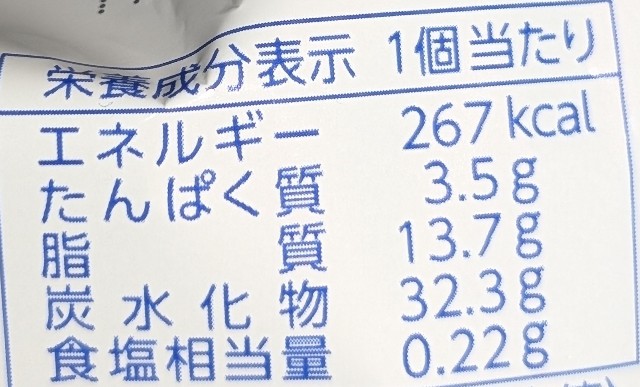 栄養成分表示 1個当たり
エネルギー 267kcal
たんぱく質 3.5g
脂質 13.7g
炭水化物 32.3g
食塩相当量 0.22g